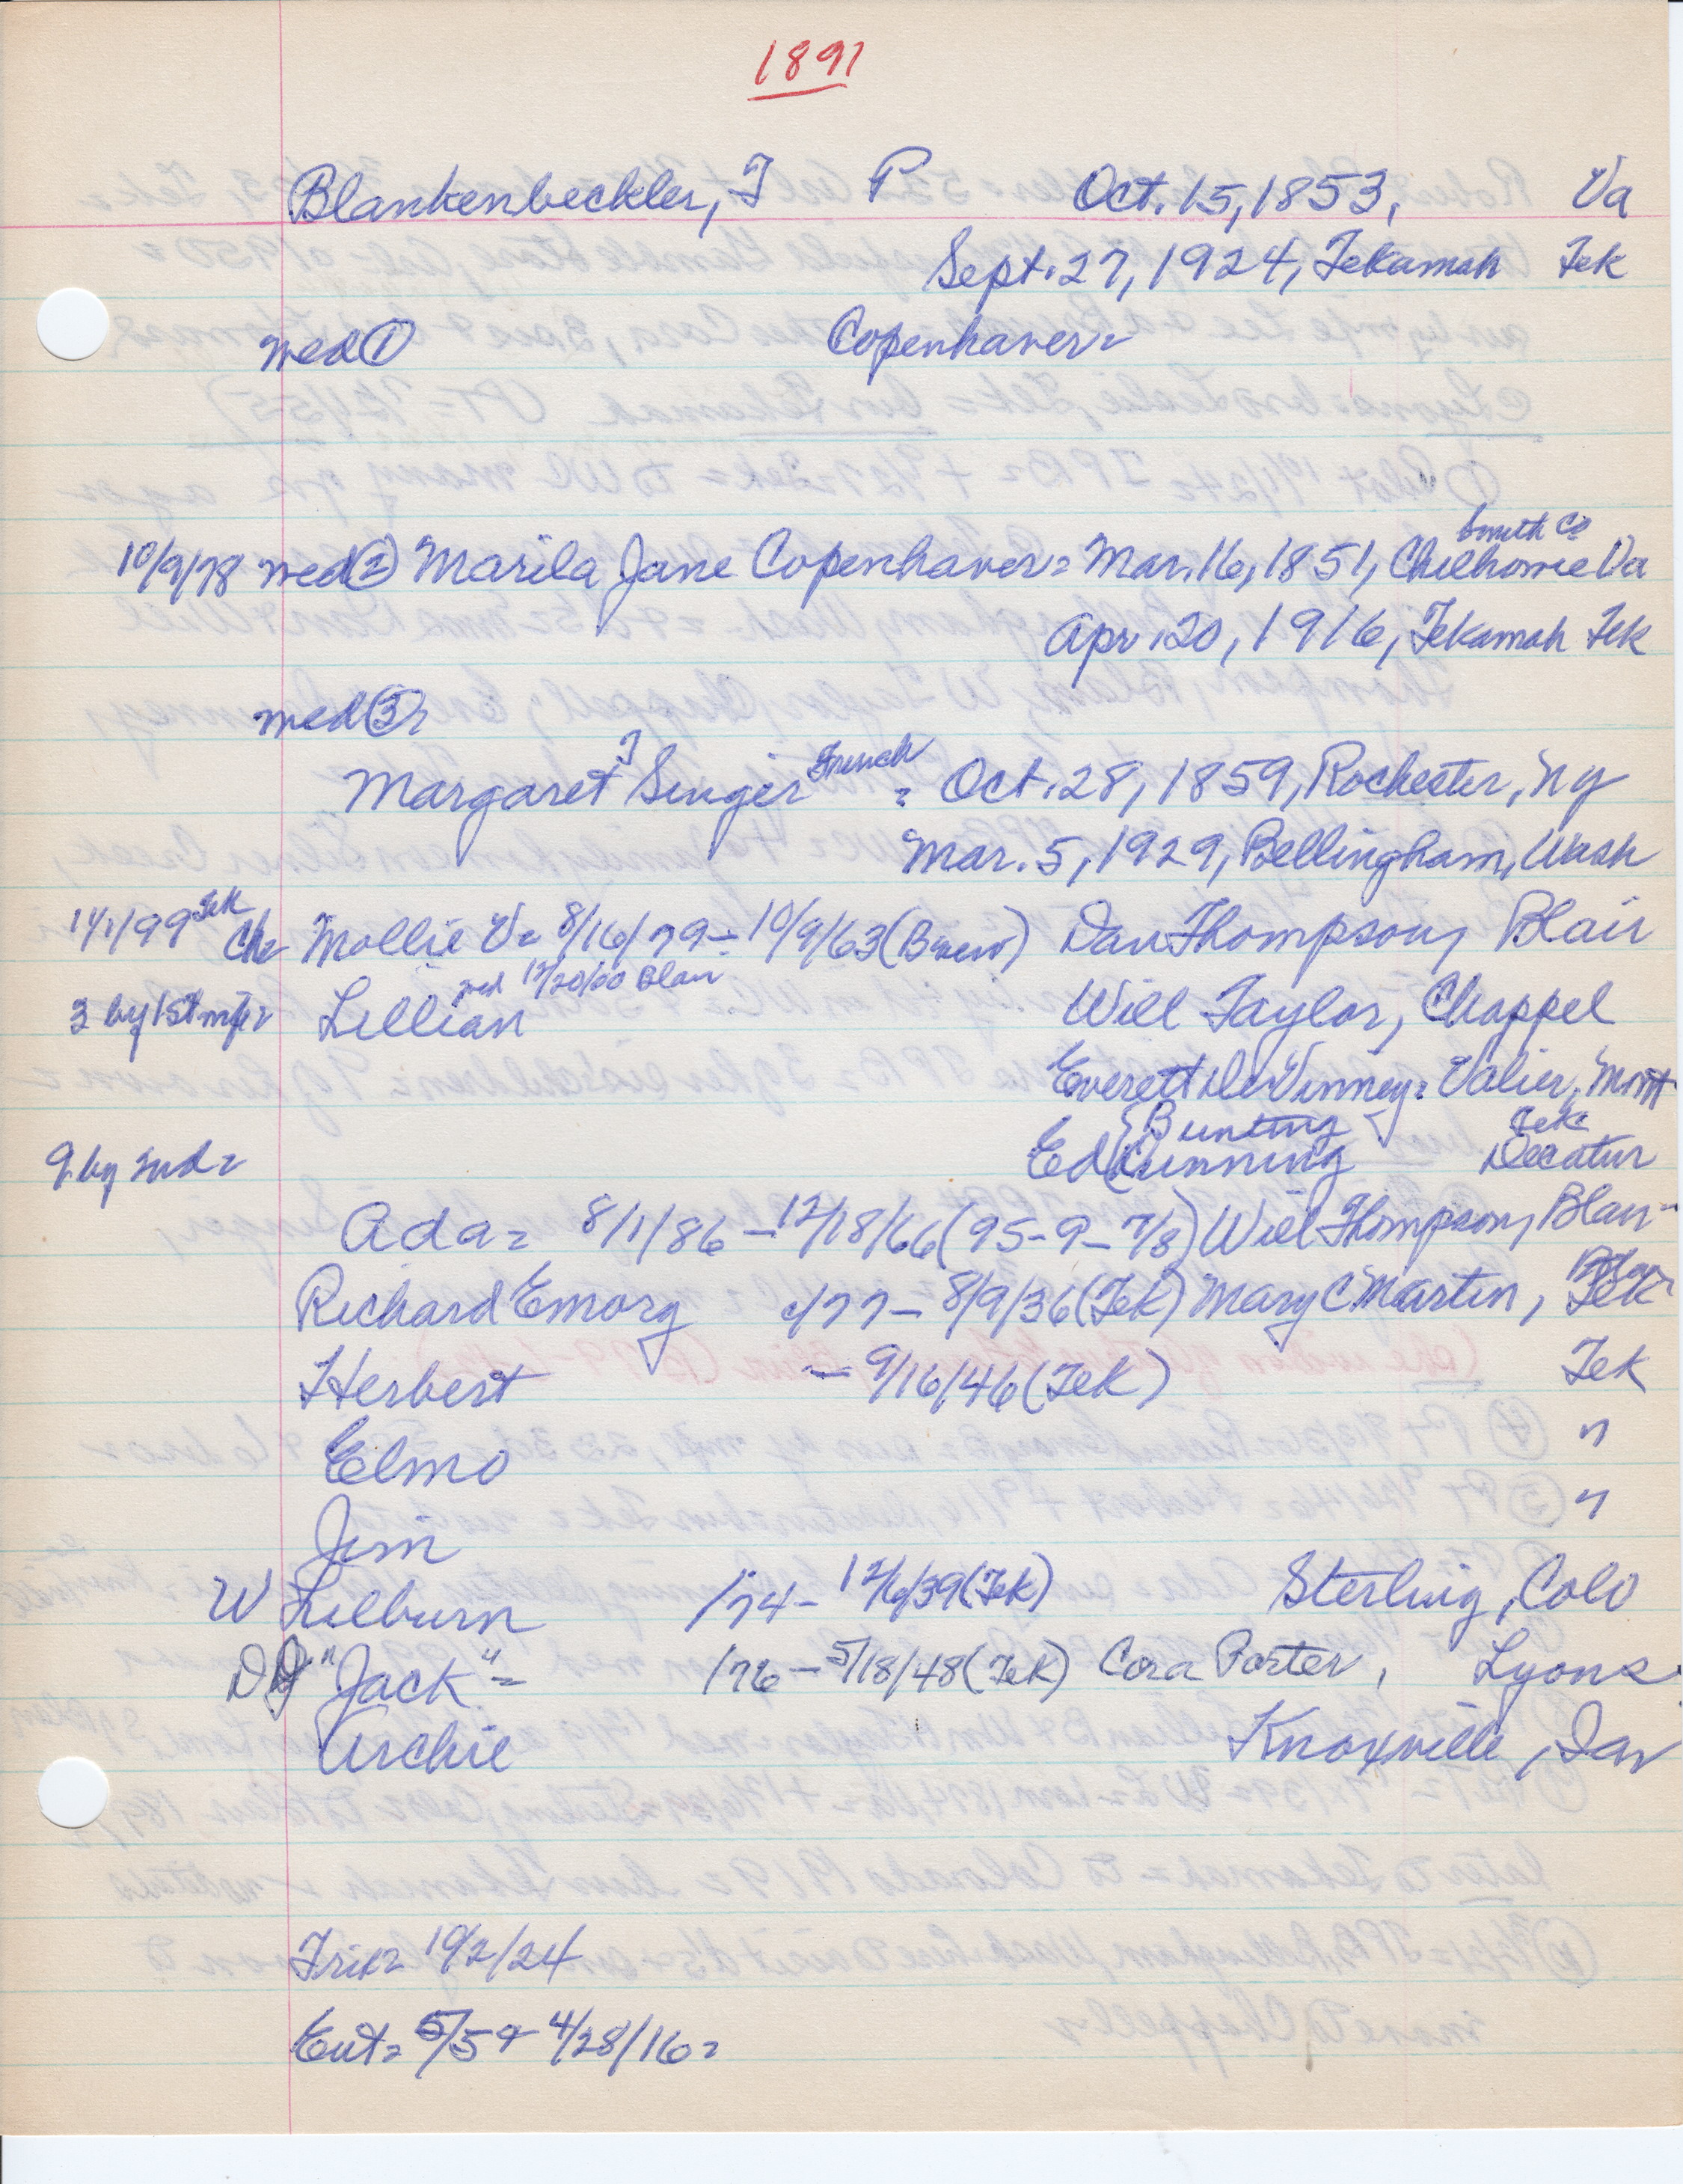 1891
Blankenbeckler, J P Oct. 15, 1853, Va
Sept. 27, 1924, Tekamah Tek
med ① Copenhaver =
Smith Co
10/9/78 med ② Marila Jane Copenhaver = Mar. 16, 1851, Chilhowie Va
Apr. 20, 1916, Tekamah Tek
med ③ =
Margaret J Singer French = Oct. 28, 1859, Rochester, NY
Mar. 5, 1929, Bellingham, Wash
11/1/99 Tek Ch = Mollie V = 8/16/79 – 10/9/63 ( ) Dan Thompson, Blair
med 12/20/00 Blair
3 by 1st mge = Lillian Will Taylor, Chappel
Everett DeVinney = Valier, Mont
Bunting Tek
9 by 2nd = Ed (Cunning Decatur
Ada = 8/1/86 – 12/18/66 (95-9-7/8) Will Thompson, Blair
Richard Emory c/77 – 8/9/36 (Tek) Mary C Martin, Tek
Herbert – 9/16/46 (Tek) Tek
Elmo "
Jim "
W Lilburn /74 – 12/6/39 (Tek) Sterling, Colo
D "Jack" = /76 – 5/18/48 (Tek) Cora Porter, Lyons
Archie Knoxville, Iav
Frik = 10/2/24
Ent = 5/5 + 4/28/16 =